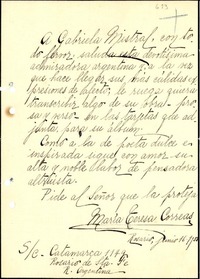 A Gabriela Mistral, con to-
do fervor, saluda esta devotísima
admiradora argentina y a la vez
que hace llegar sus más cálidas ex-
presiones de afecto, le ruega quiera
transcribir algo de su obra - prosa
y verso - en las tarjetas que ad-
junta para su álbum.
Canto a la de poeta dulce e
inspirada sigue con amor su
alta y noble labor de pensadora
altruista.
Pide al Señor que la proteja
Marta Teresa Correas
Rosario, Junio 16
S/c. Catamarca 1346
Rosario de Sta. Fe
R. Argentina